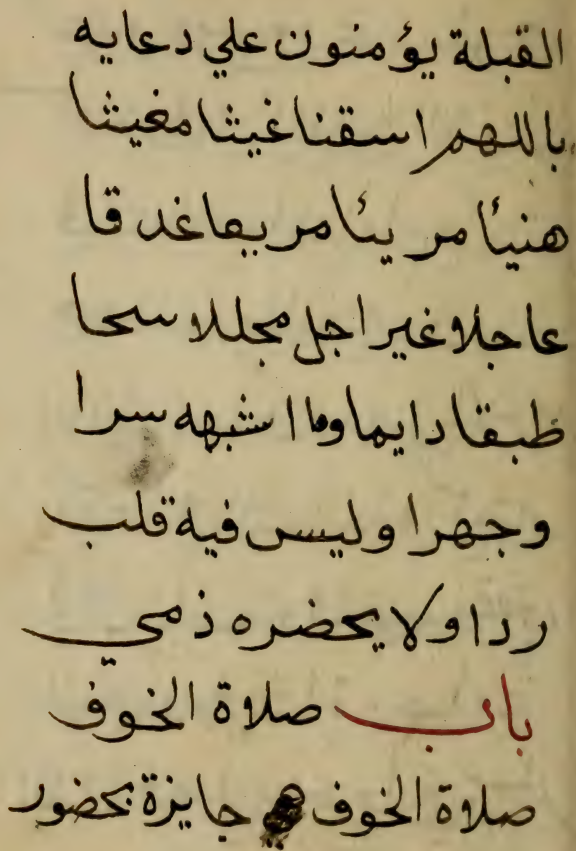 القبلة يؤمنون علي دعايه
باللهم اسقنا غيثا مغيثا
هنيئا مريئا مريعا غدقا
عاجلا غير اجل مجللا سحا
طبقا دايما وما اشبهه سرا
وجهرا وليس فيه قلب
رداولا يحضره ذمي
باب صلاة الخوف
صلاة الخوف جايزة بحضور